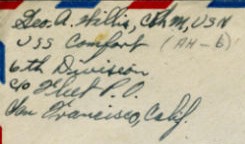 Geo. A. Willis, CPhM, USN
USS Comfort (AH-6)
6th Division
c/o Fleet P.O.
San Francisco, Calif.